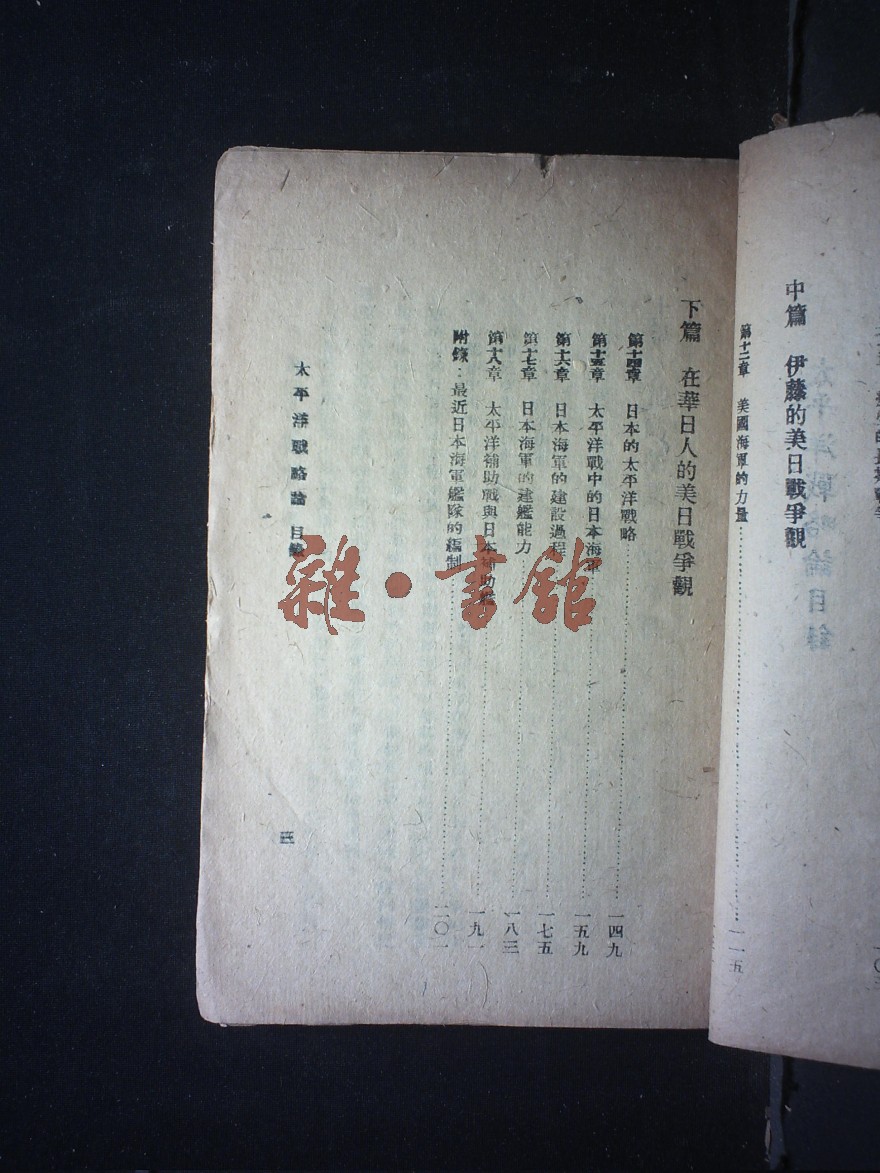 中篇　伊藤的美日戰爭觀
第十二章　美國海軍的力量⋯⋯一一五
下篇　在華日人的美日戰爭觀
第十四章　日本的太平洋戰略⋯⋯一四九
第十五章　太平洋戰中的日本海軍⋯⋯一五九
第十六章　日本海軍的建設過程⋯⋯一七五
第十七章　日本海軍的建艦能力⋯⋯一八三
第十八章　太平洋補助戰與日本補助⋯⋯一九一
附錄：最近日本海軍艦隊的編制⋯⋯二〇一
太平洋戰略論　目錄
三
雜·書館
太平洋戰略論目錄